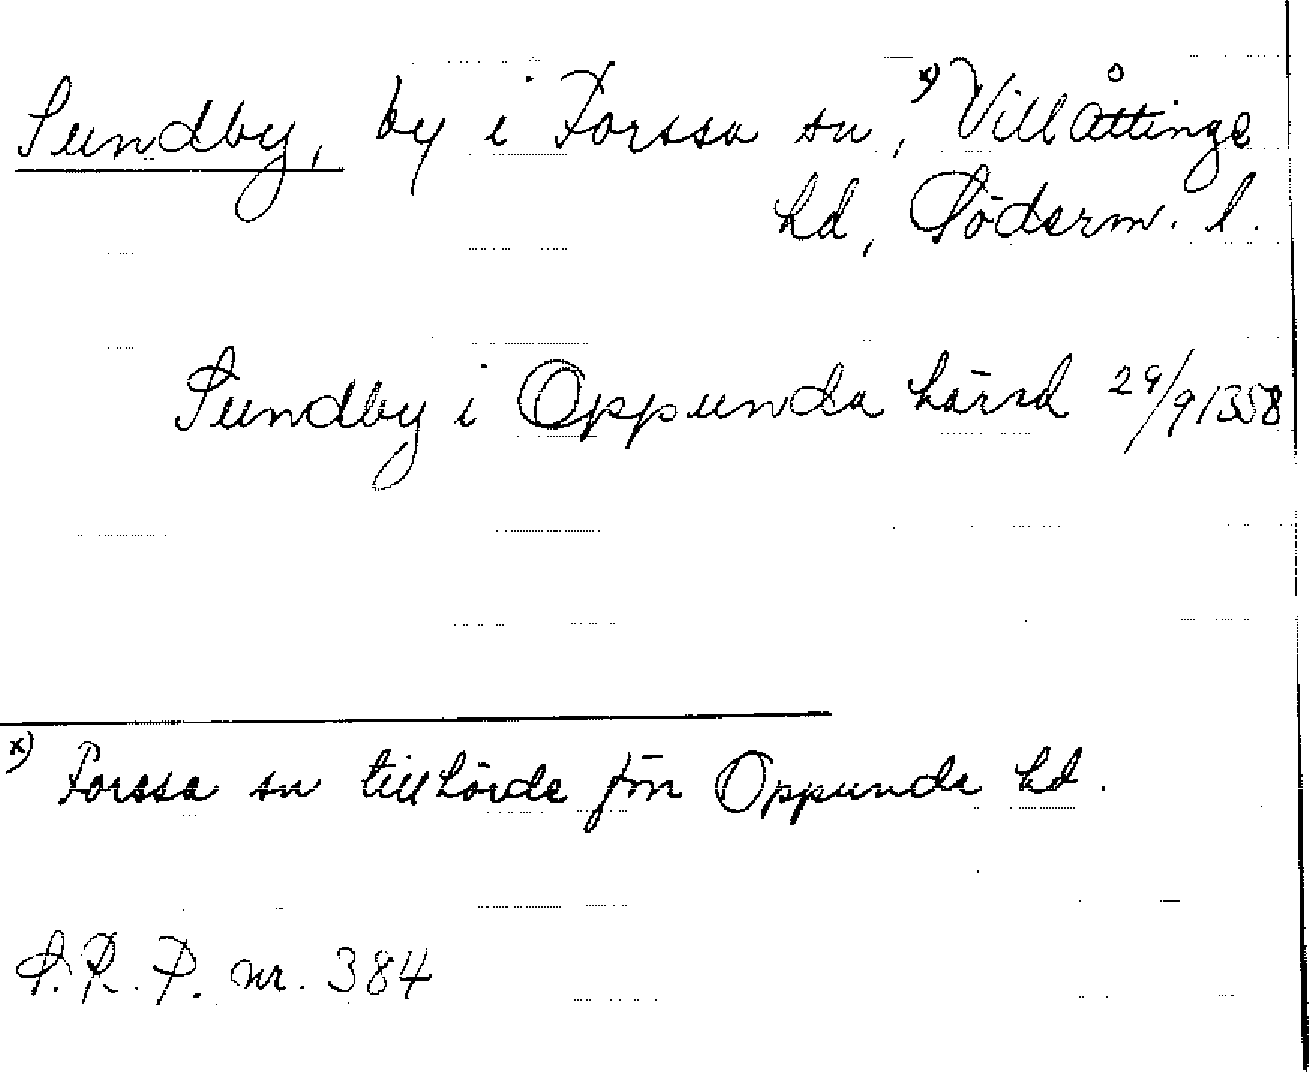 Sundby, by i Forssa sn,ˣ⁾ Villåttinge
hd, Söderm. l.
Sundby i Oppunda härad 29/9 1358
x) Forssa sn tillhörde förr Oppunda hd.
S.R.P. nr. 384